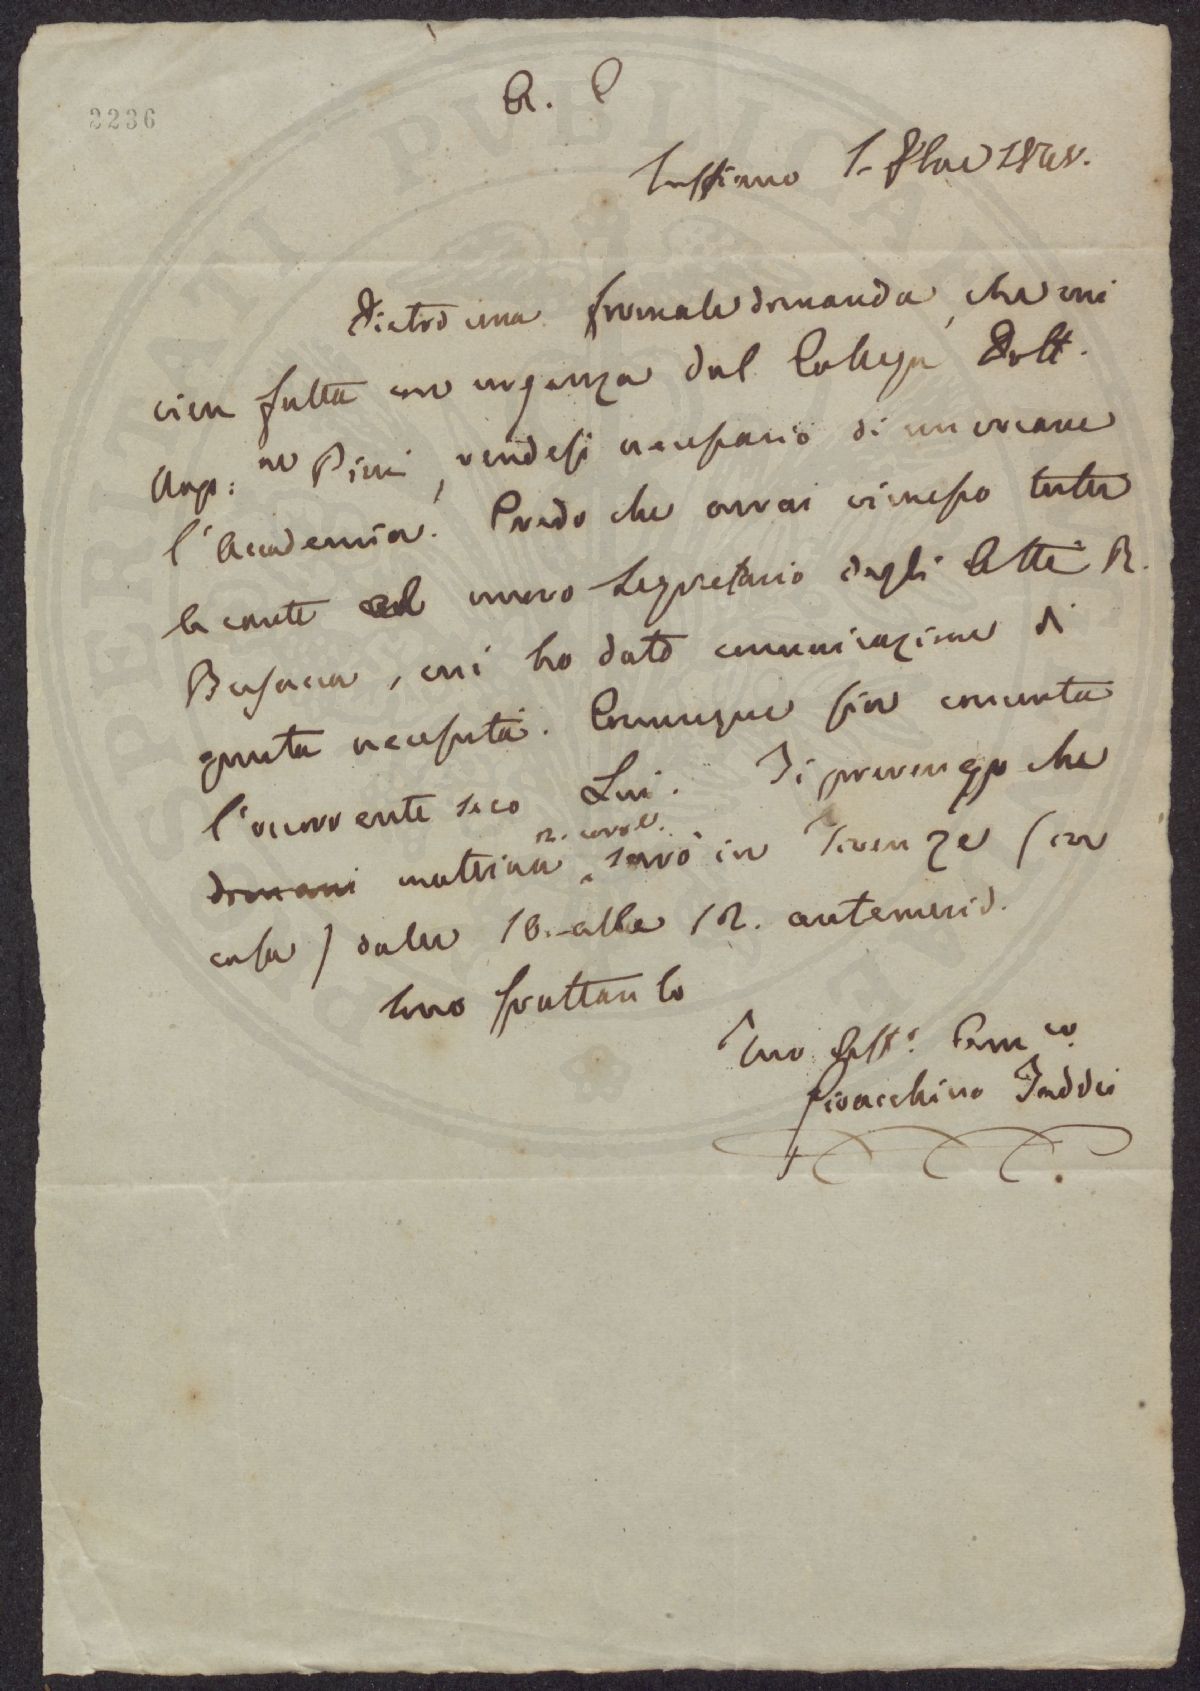 3236
A. C.
1. 
Dietro una formale domanda, che mi
vien fatta con urgenza dal Collega Dott.
Ang:lo Pieri, rendesi necessario di convocare
l'Accademia. Credo che avrai rimesso tutte
le carte al nuovo Segretario degli Atti R.
, cui ho dato comunicazione di
questa necessità. Comunque sia concerta
l'occorrente seco Lui. Ti prevengo che
domani mattina sarò in Firenze (in
casa) dalle 10. alle 12. antemerid.
Sono frattanto
Tuo Aff.o Am.co
Gioacchino Taddei